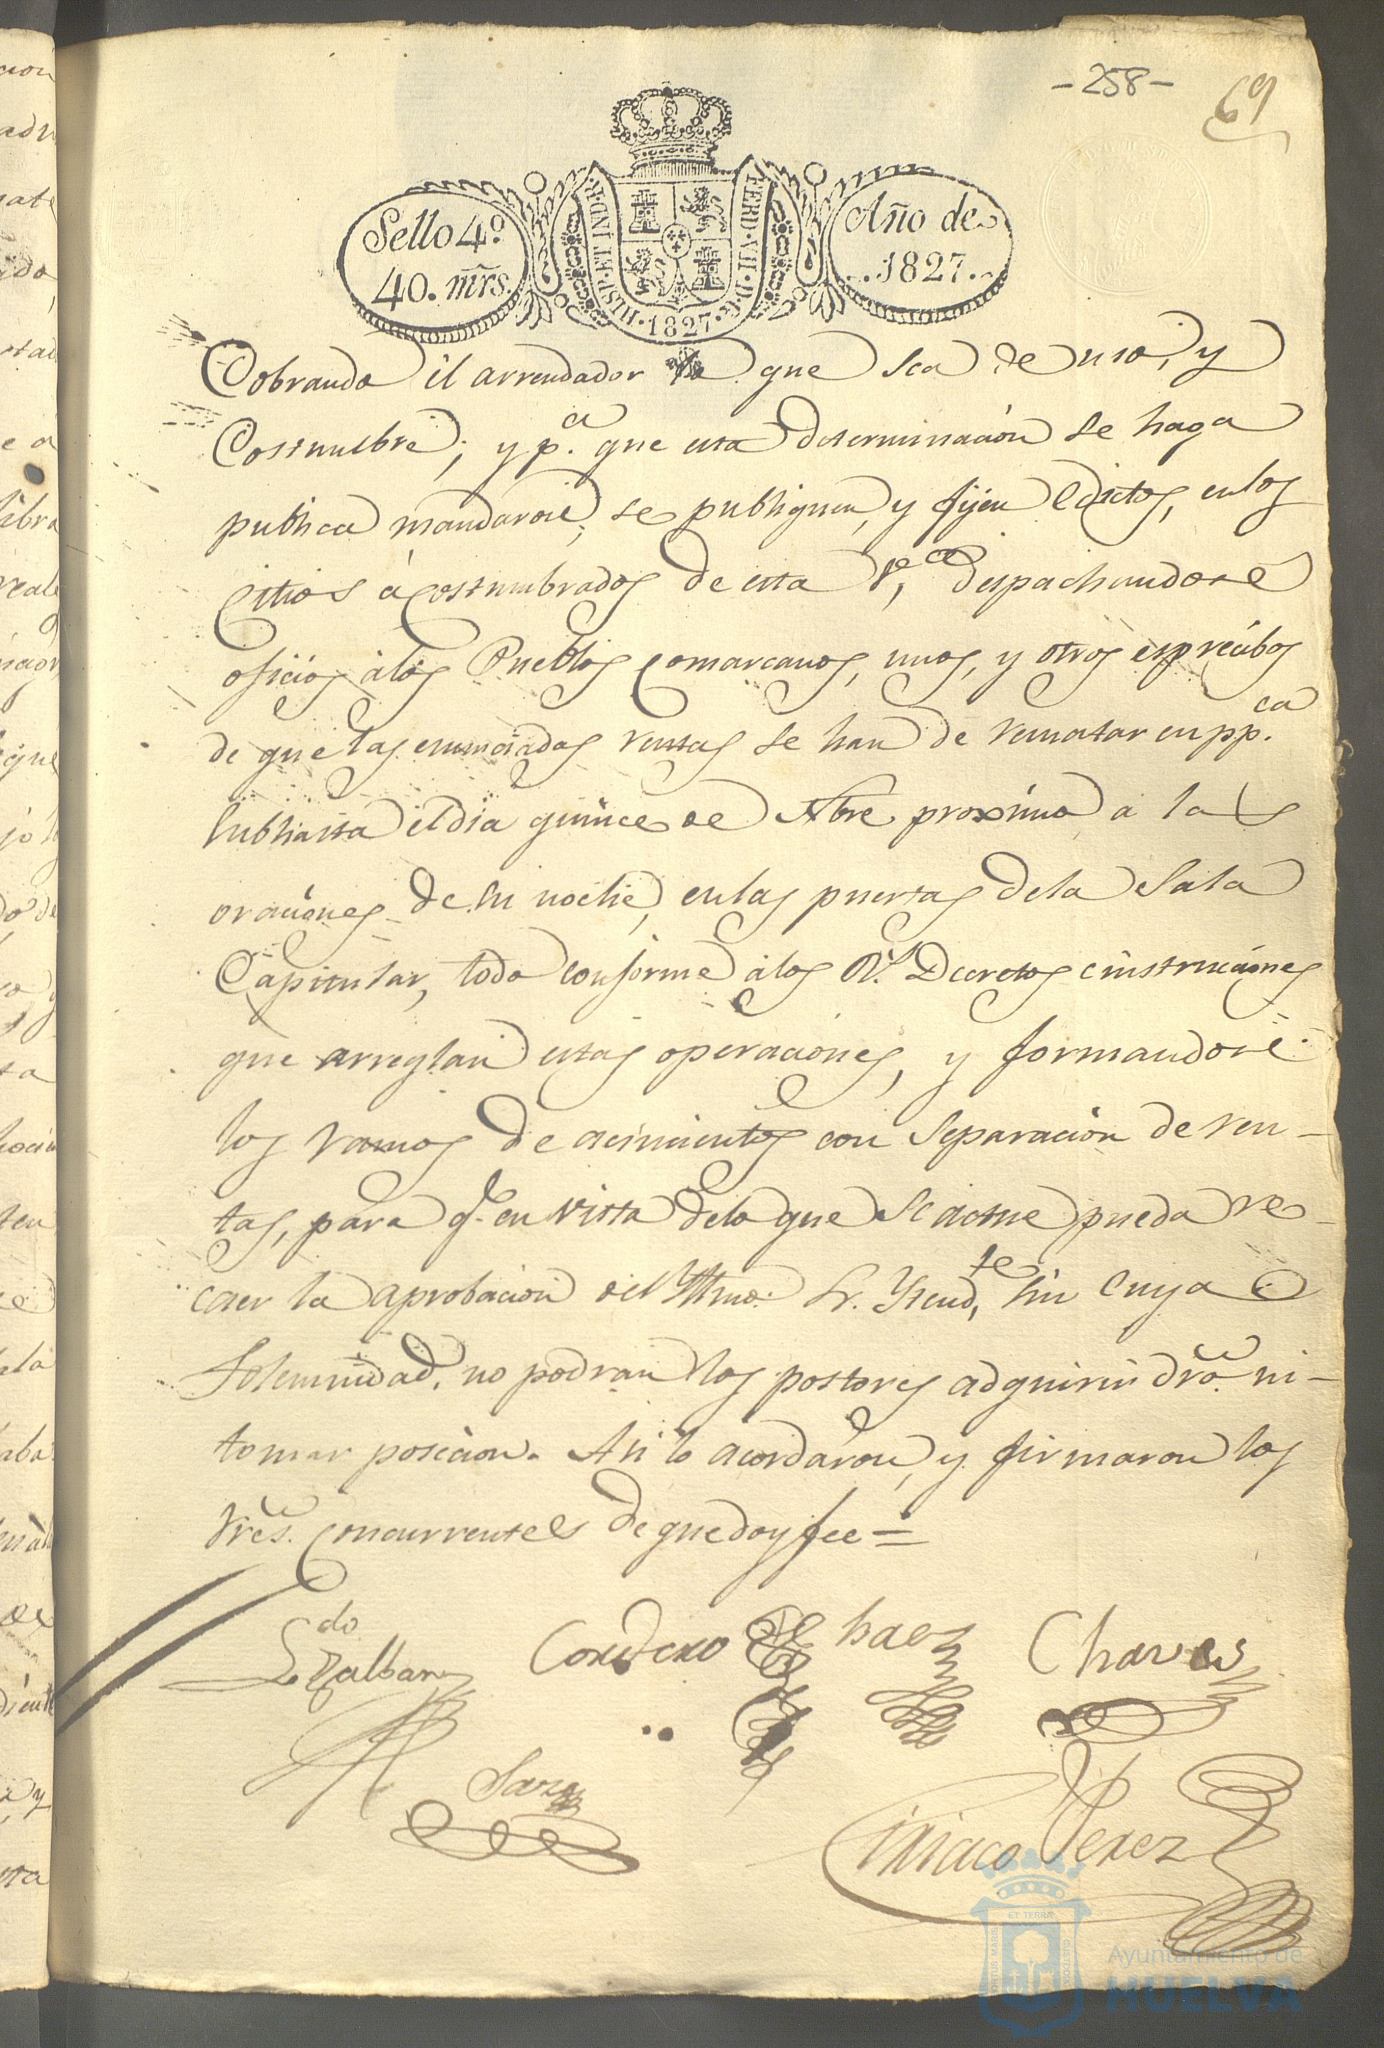 -258-
69
Sello 4º
40. mrs.
HISP. ET IND. R.
FERD. VII. D. G.
1827
Año de
1827.
Cobrando el arrendador lo que sea de uso, y
Costumbre; y pª. que esta determinación se haga
publica mandaron, se publiquen, y fijen Edictos, en los
citios acostumbrados de esta vª, despachandose
oficios a los Pueblos comarcanos, unos, y otros espresibos
de que las enunciadas rentas se han de rematar en ppca.
subhasta el dia quince de Nbre proximo a las
oraciones de su noche, en las puertas de la Sala
Capitular, todo conforme a los Rs. Decretos e instruciones
que arreglan estas operaciones, y formandose
los ramos de acimientos con separacion de ren-
tas, para q. en vista de lo que se actue pueda re-
caer la aprobacion del Yltmo. Sr. Yntendte, sin cuya
Solemnidad, no podran los postores adquirir dro. ni
tomar posecion. Asi lo acordaron, y firmaron los
Sres. Concurrentes de que doy fee =
Ldo Zalbar
Cordero
Chaves
Ciriaco Perez
ET TERRÆ
Ayuntamiento de
HUELVA